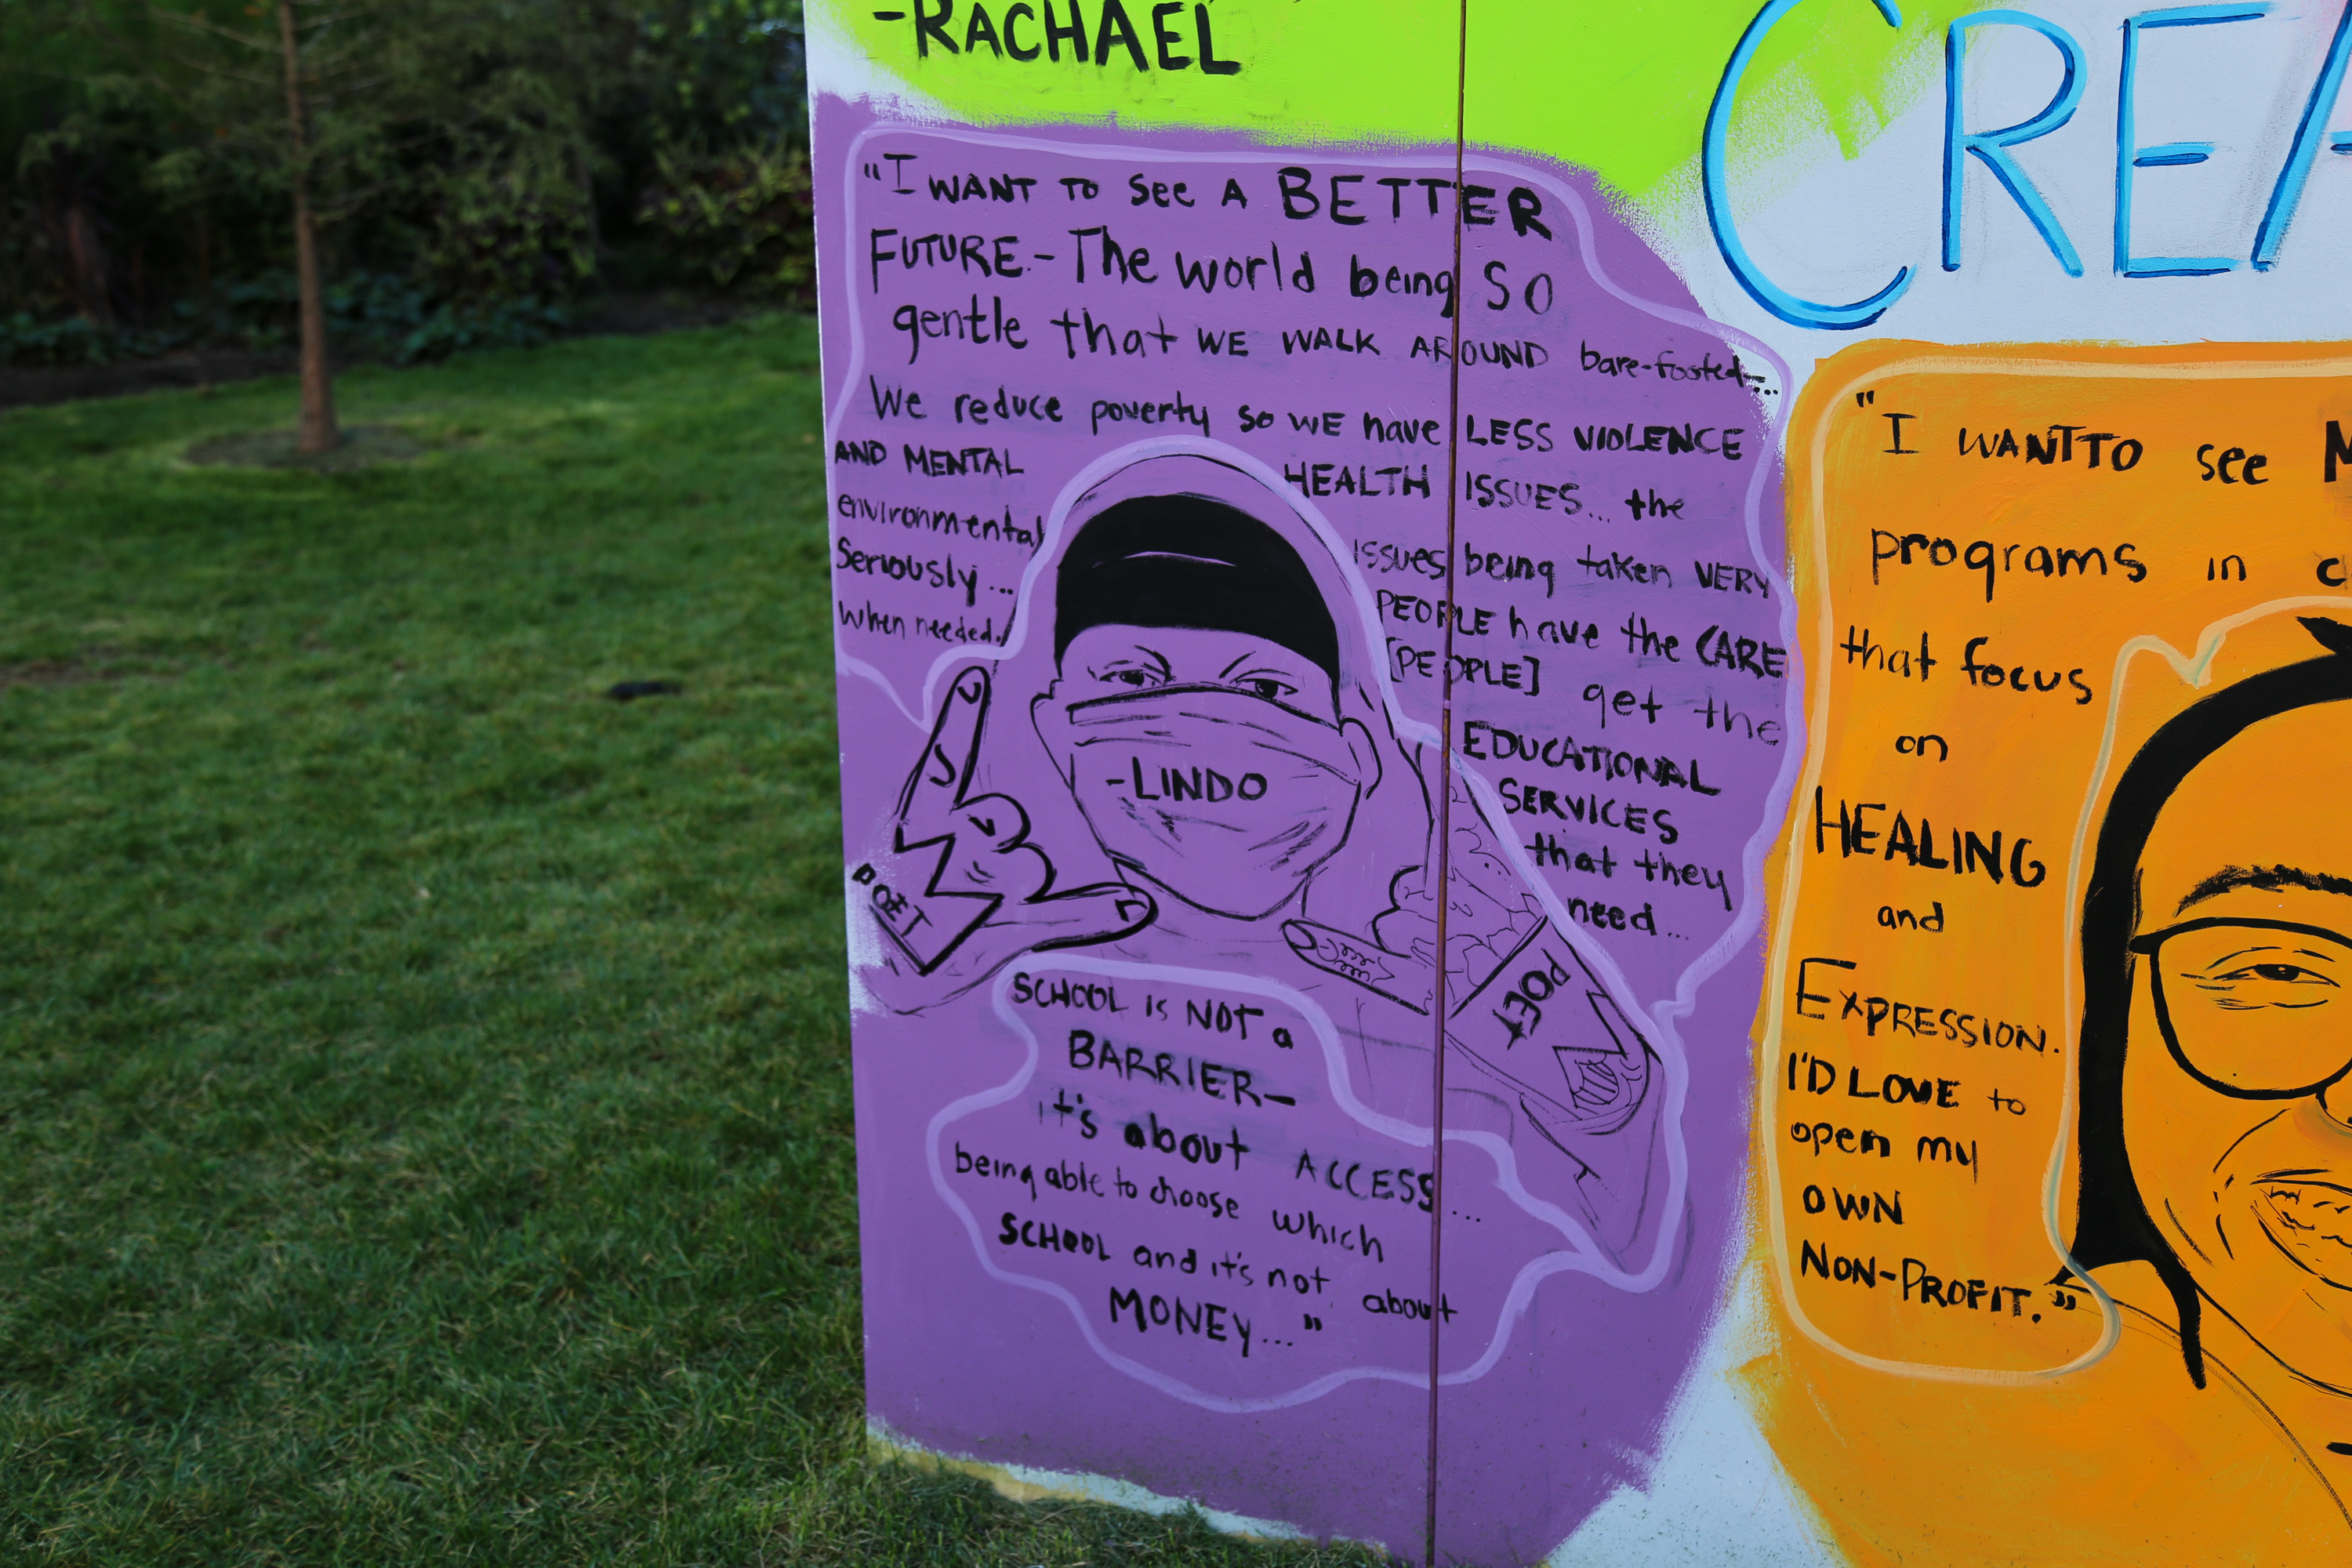 -RACHAEL
CREA
"I WANT TO See A BETTER
FUTURE - The world being SO
gentle that WE WALK AROUND bare-footed-...
We reduce poverty so WE have LESS VIOLENCE
AND MENTAL HEALTH ISSUES... the
environmental issues being taken VERY
Seriously... PEOPLE have the CARE
When needed. [PEOPLE] get the
EDUCATIONAL
SERVICES
that they
need...
-LINDO
POET
POET
SCHOOL is NOT a
BARRIER-
it's about ACCESS...
being able to choose which
SCHOOL and it's not about
MONEY..."
"I WANT TO see
programs in
that focus
on
HEALING
and
EXPRESSION.
I'D LOVE to
open my
OWN
NON-PROFIT."